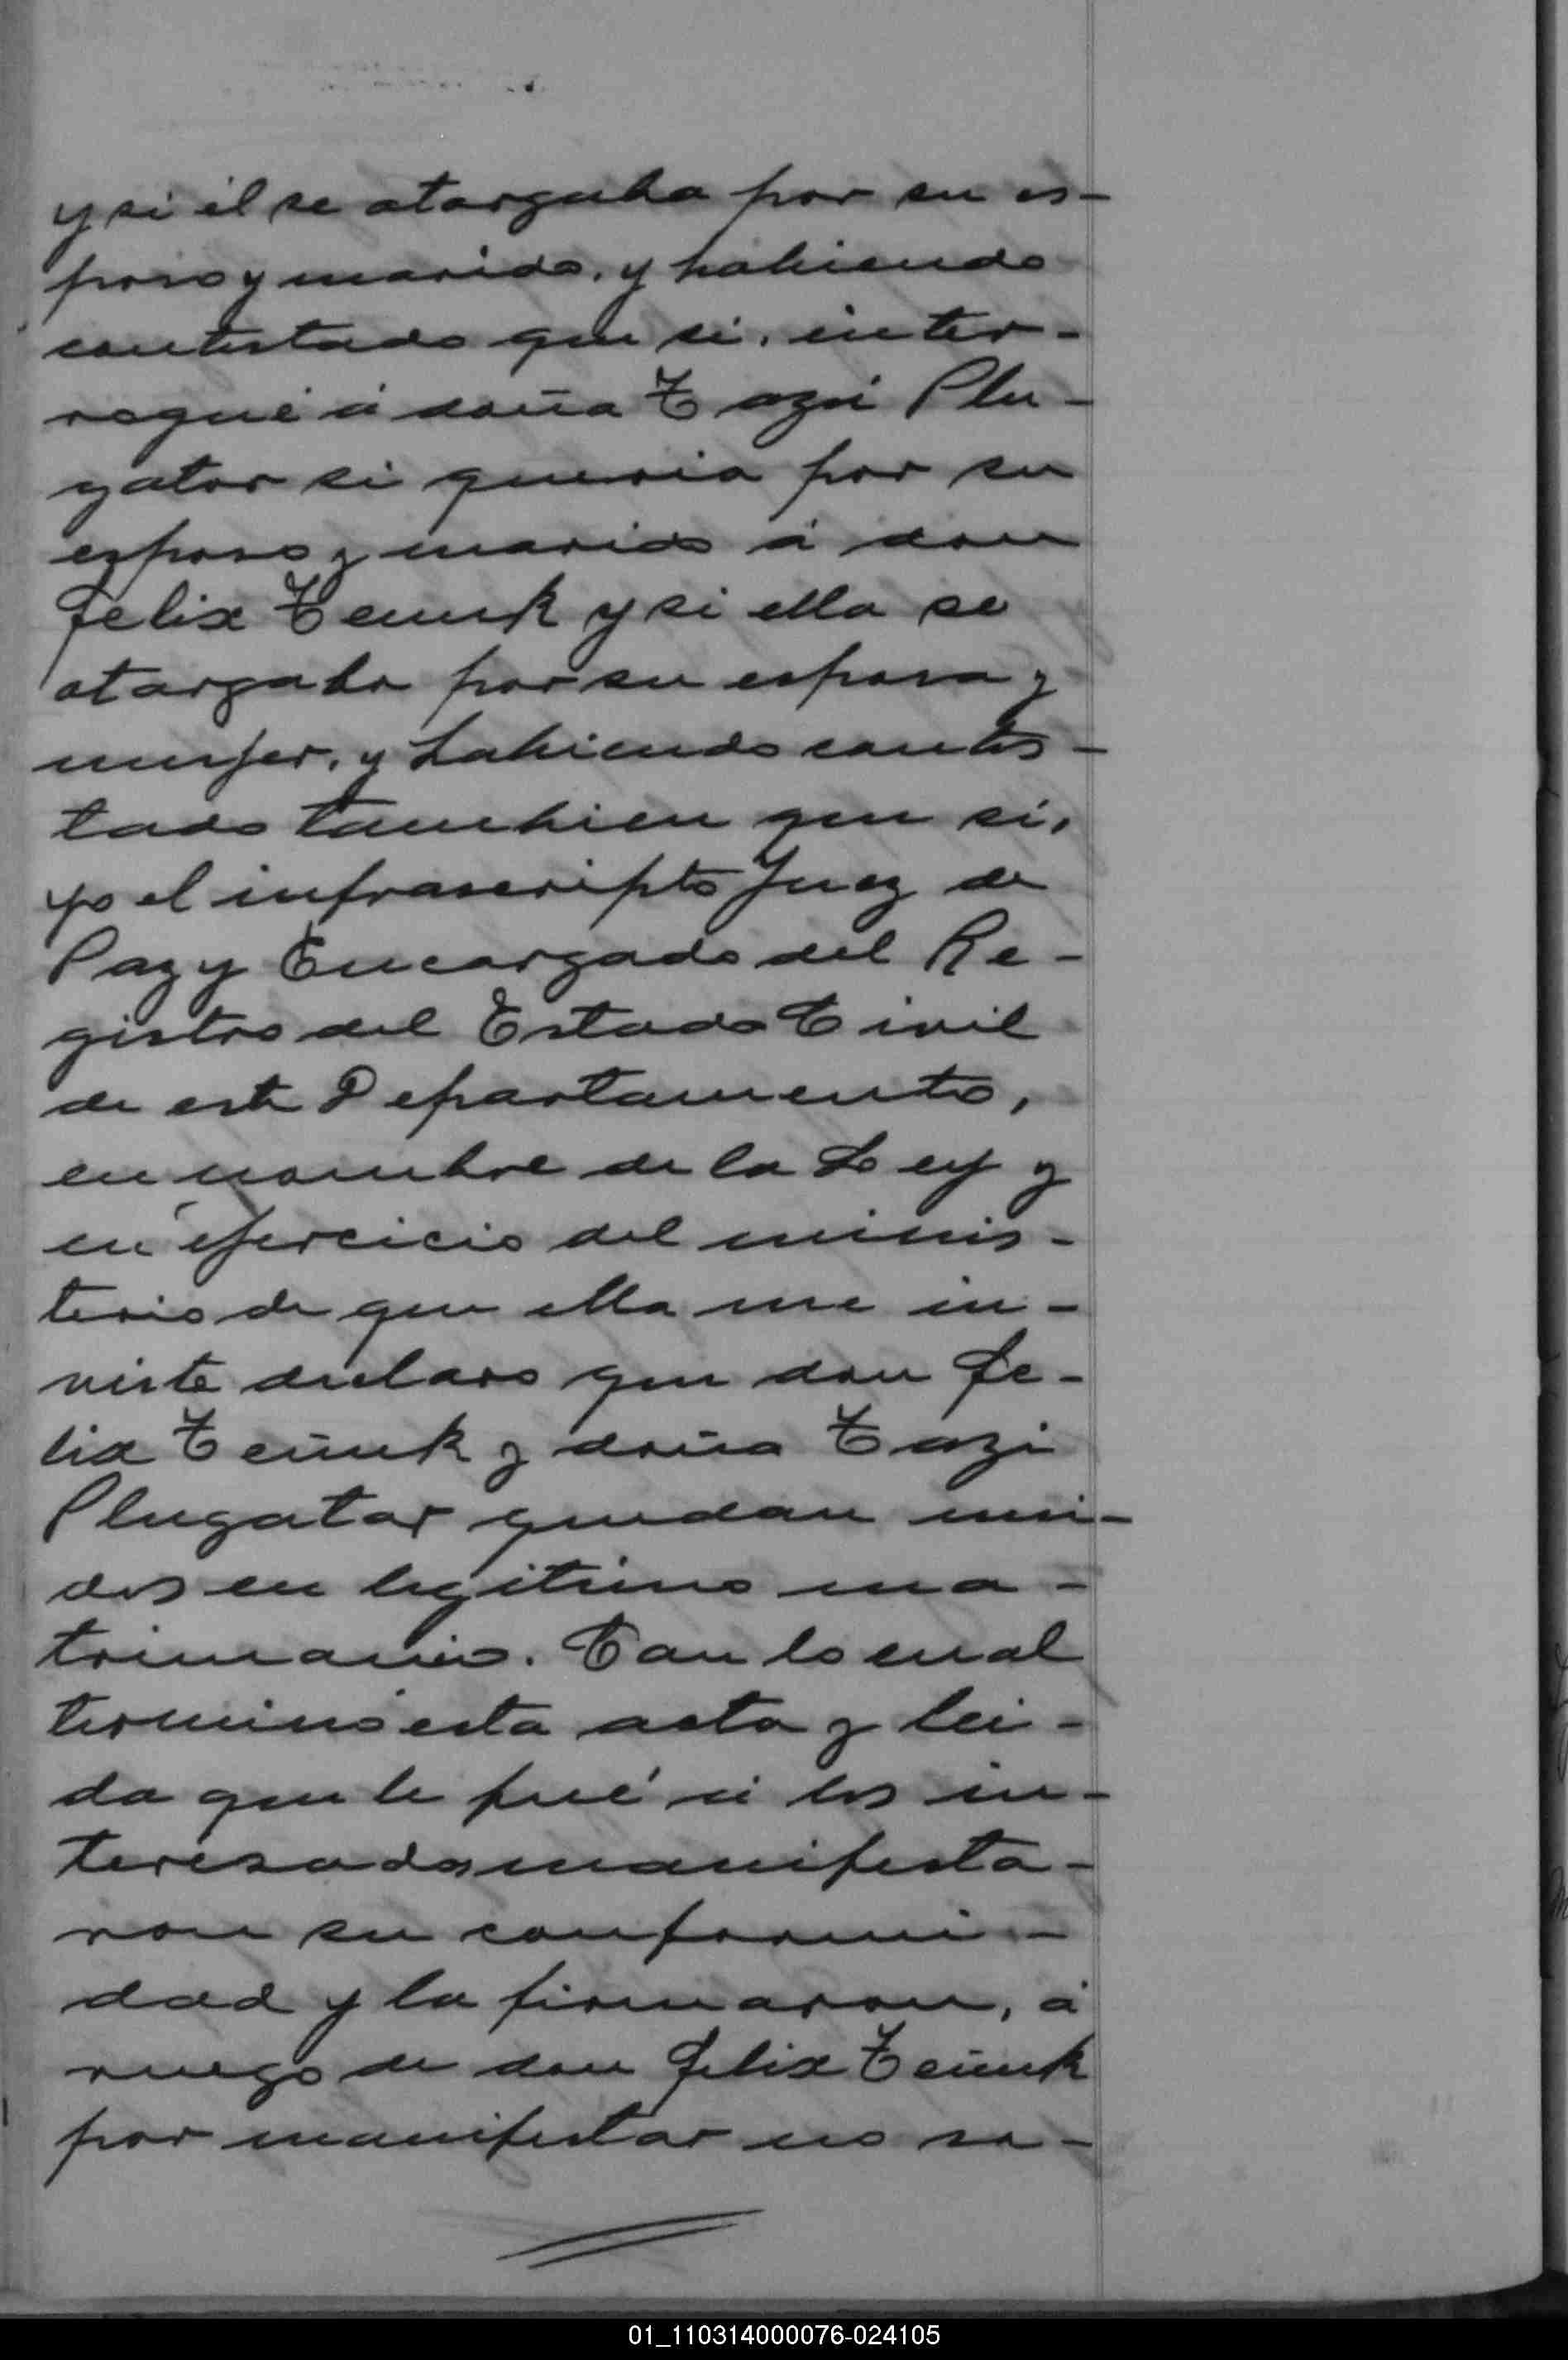 y si él se otorgaba por su es-
poso y marido, y habiendo
contestado que si, inter-
rogué á doña Cazi Plu-
gator si queria por su
esposo y marido á don
Felix Ceñuk y si ella se
otorgaba por su esposa y
mujer, y habiendo contes-
tado tambien que si,
yo el infrascripto Juez de
Paz y Encargado del Re-
gistro del Estado Civil
de este Departamento,
en nombre de la Ley y
en ejercicio del minis-
terio de que ella me in-
viste declaro que don Fe-
lix Ceñuk y doña Cazi
Plugator quedan uni-
dos en legitimo ma-
trimonio. Con lo cual
terminó esta acta y lei-
da que le fué á los in-
teresados manifesta-
ron su conformi-
dad y la firmaron, á
ruego de don Felix Ceñuk
por manifestar no sa-
01_110314000076-024105